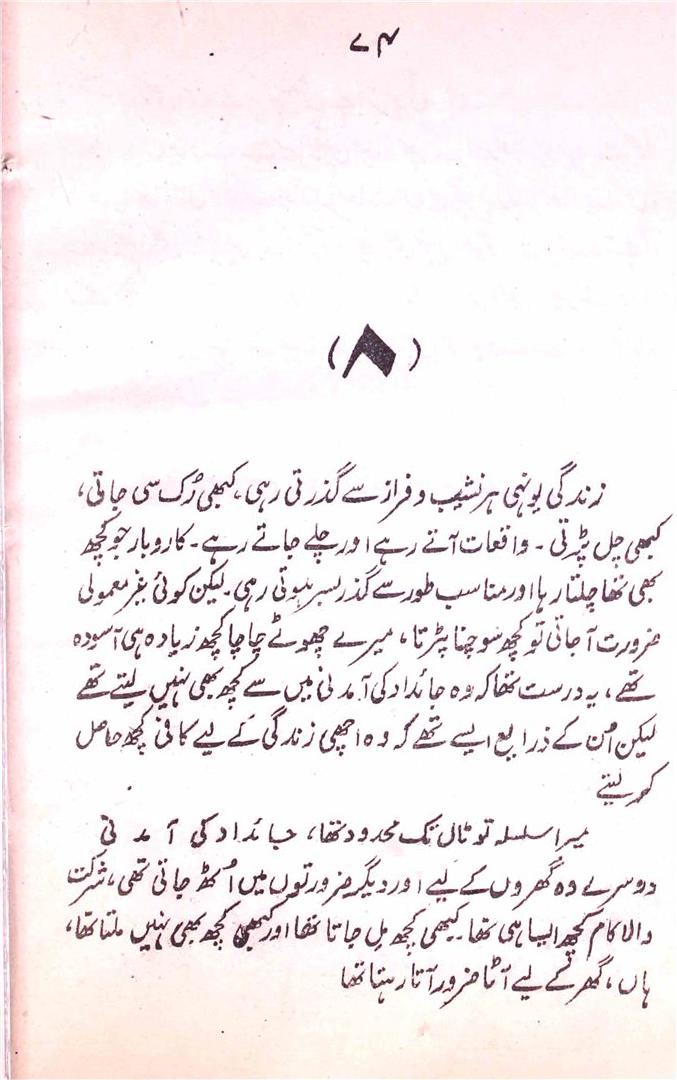 ۷۴
(۸)
زندگی یونہی ہر نشیب و فراز سے گذرتی رہی۔ کبھی رُک سی جاتی،
کبھی چل پڑتی ۔ واقعات آتے رہے اور چلے جاتے رہے۔ کاروبار جو کچھ
بھی تھا چلتا رہا اور مناسب طور سے گذر بسر ہوتی رہی۔ لیکن کوئی غیر معمولی
ضرورت آجاتی تو کچھ سوچنا پڑتا، میرے چھوٹے چاچا کچھ زیادہ ہی آسودہ
تھے، یہ درست تھا کہ وہ جائداد کی آمدنی میں سے کچھ بھی نہیں لیتے تھے
لیکن اُن کے ذرایع ایسے تھے کہ وہ اچھی زندگی کے لیے کافی کچھ حاصل
کر لیتے
میرا سلسلہ تو ٹال تک محدود تھا، جائداد کی آمدنی
دوسرے وہ گھروں کے لیے اور دیگر ضرورتوں میں اُٹھ جاتی تھی، شرکت
والا کام کچھ ایسا ہی تھا۔ کبھی کچھ مل جاتا تھا اور کبھی کچھ بھی نہیں ملتا تھا،
ہاں، گھر کے لیے آٹا ضرور آتا رہتا تھا